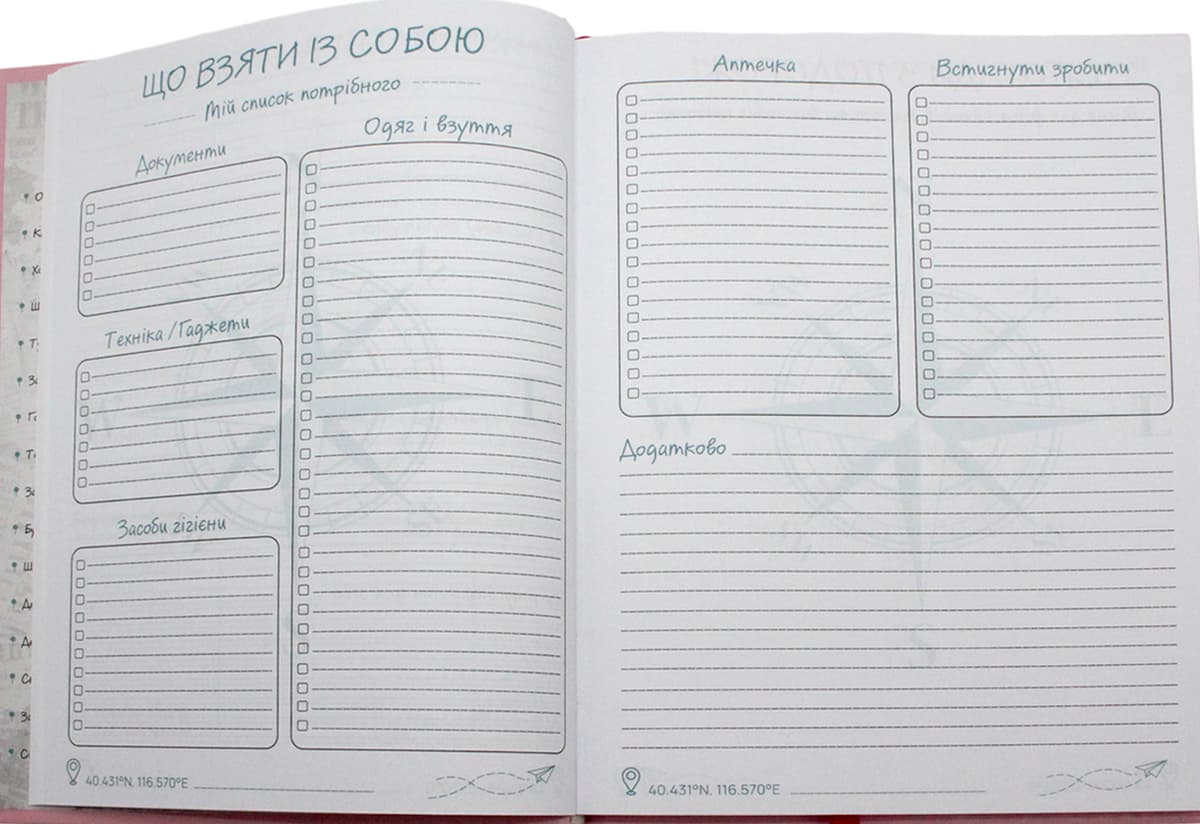 ЩО ВЗЯТИ ІЗ СОБОЮ
Мій список потрібного
Документи
Одяг і взуття
Техніка / Гаджети
Засоби гігієни
40.431°N, 116.570°E
Аптечка
Встигнути зробити
Додатково
40.431°N, 116.570°E